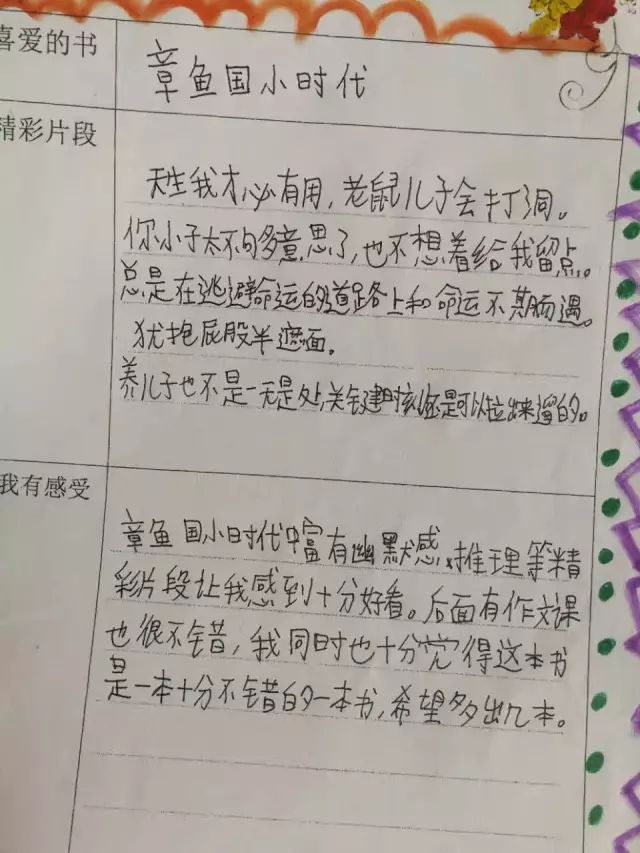 喜爱的书
章鱼国小时代
精彩片段
天生我才必有用，老鼠儿子会打洞。
你小子太不够意思了，也不想着给我留点。
总是在逃避命运的道路上和命运不期而遇。
犹抱屁股半遮面。
养儿子也不是一无是处，关键时刻还是可以拉出来遛的。
我有感受
章鱼国小时代中富有幽默感，推理等精
彩片段让我感到十分好看。后面有作文课
也很不错，我同时也十分觉得这本书
是一本十分不错的一本书，希望多出几本。